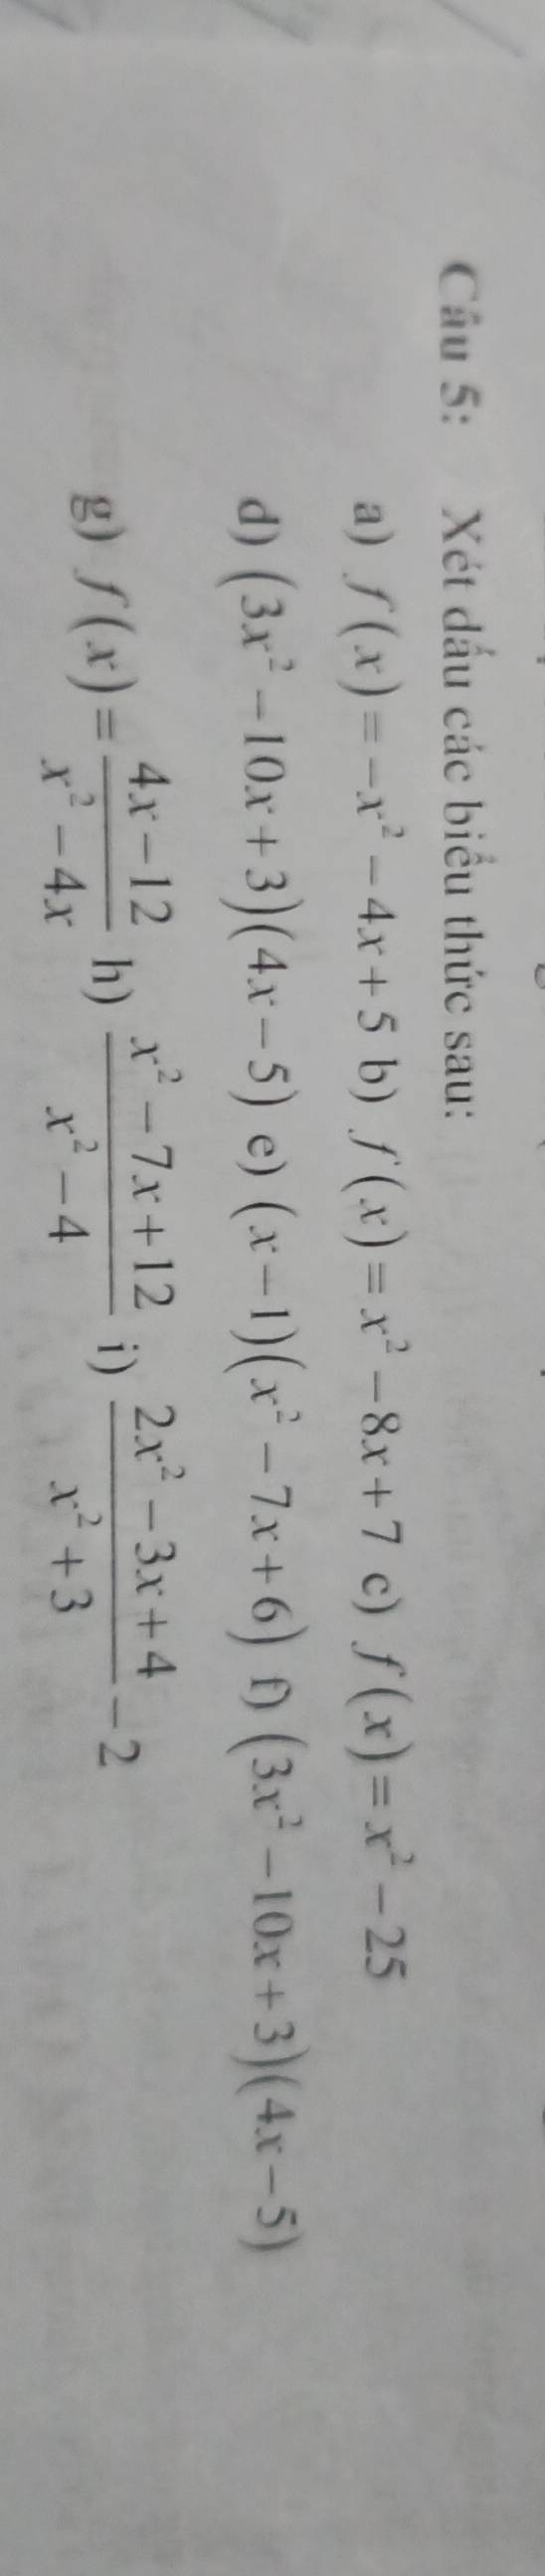 Câu 5: Xét dấu các biểu thức sau:
a) f(x) = -x² - 4x + 5 b) f(x) = x² - 8x + 7 c) f(x) = x² - 25
d) (3x² - 10x + 3)(4x - 5) e) (x - 1)(x² - 7x + 6) f) (3x² - 10x + 3)(4x - 5)
g) f(x) = \frac{4x - 12}{x² - 4x} h) \frac{x² - 7x + 12}{x² - 4} i) \frac{2x² - 3x + 4}{x² + 3} - 2